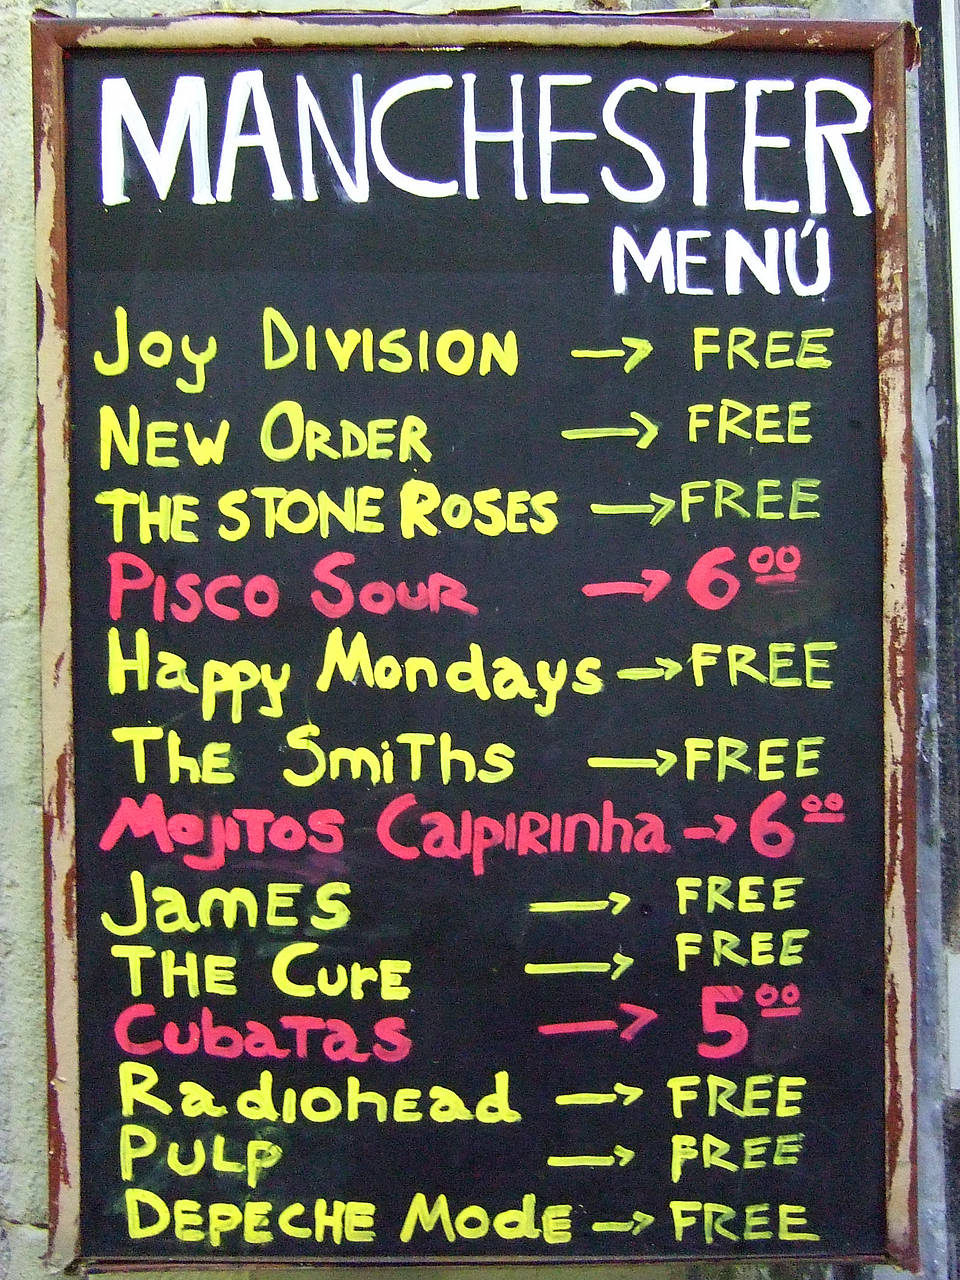 MANCHESTER
MENÚ
Joy DIVISION → FREE
NEW ORDER → FREE
THE STONE ROSES → FREE
PISCO SOUR → 6.00
Happy Mondays → FREE
The SmiThs → FREE
MOJITOS CAIPIRInha → 6.00
JamES → FREE
THE CurE → FREE
CubaTas → 5.00
RadiohEad → FREE
PULP → FREE
DEPECHE ModE → FREE